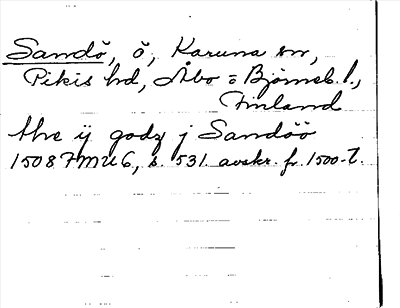 Sandö, ö, Karuna sn,
Pikis hd, Åbo o Björneb. l.,
Finland
thre ÿ godz j Sandöö
1508 FMU 6, s. 531. avskr. fr. 1500-t.